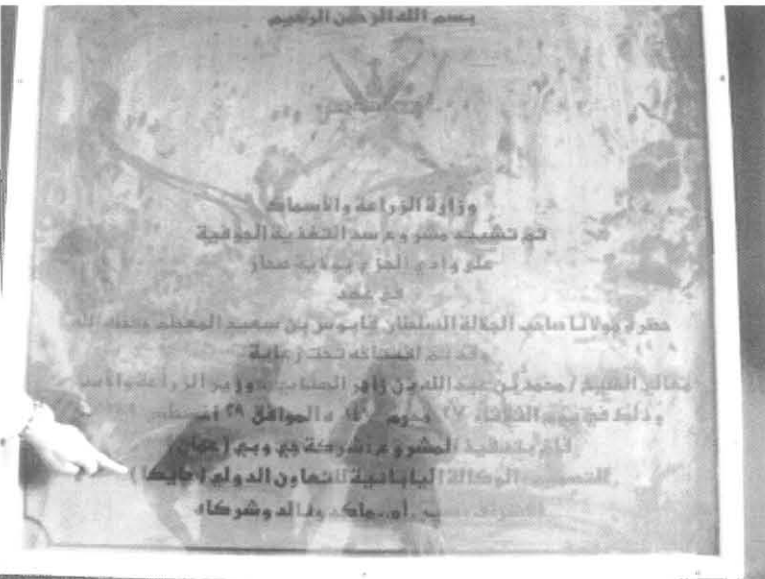 بسم الله الرحمن الرحيم
وزارة الزراعة والأسماك
تم تشييد مشروع سد التغذية الجوفية
على وادي الجزي بولاية صحار
في عهد
حضرة مولانا صاحب الجلالة السلطان قابوس بن سعيد المعظم حفظه الله
وقد تم افتتاحه تحت رعاية
معالي الشيخ / محمد بن عبدالله بن زاهر الهنائي وزير الزراعة والأسماك
وذلك في يوم الثلاثاء ٢٧ محرم الموافق ٢٩ أغسطس
قام بتنفيذ المشروع : شركة جي وبي (عمان)
التصميم : الوكالة اليابانية للتعاون الدولي (جايكا)
وشركاه